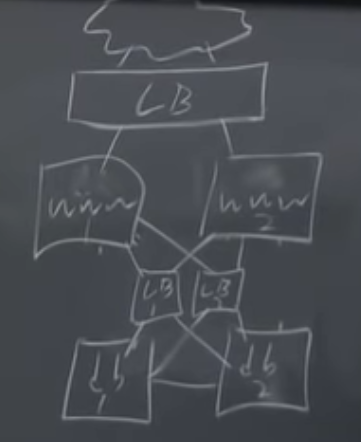 LB
www
1
www
2
LB
1
LB
2
db
1
db
2